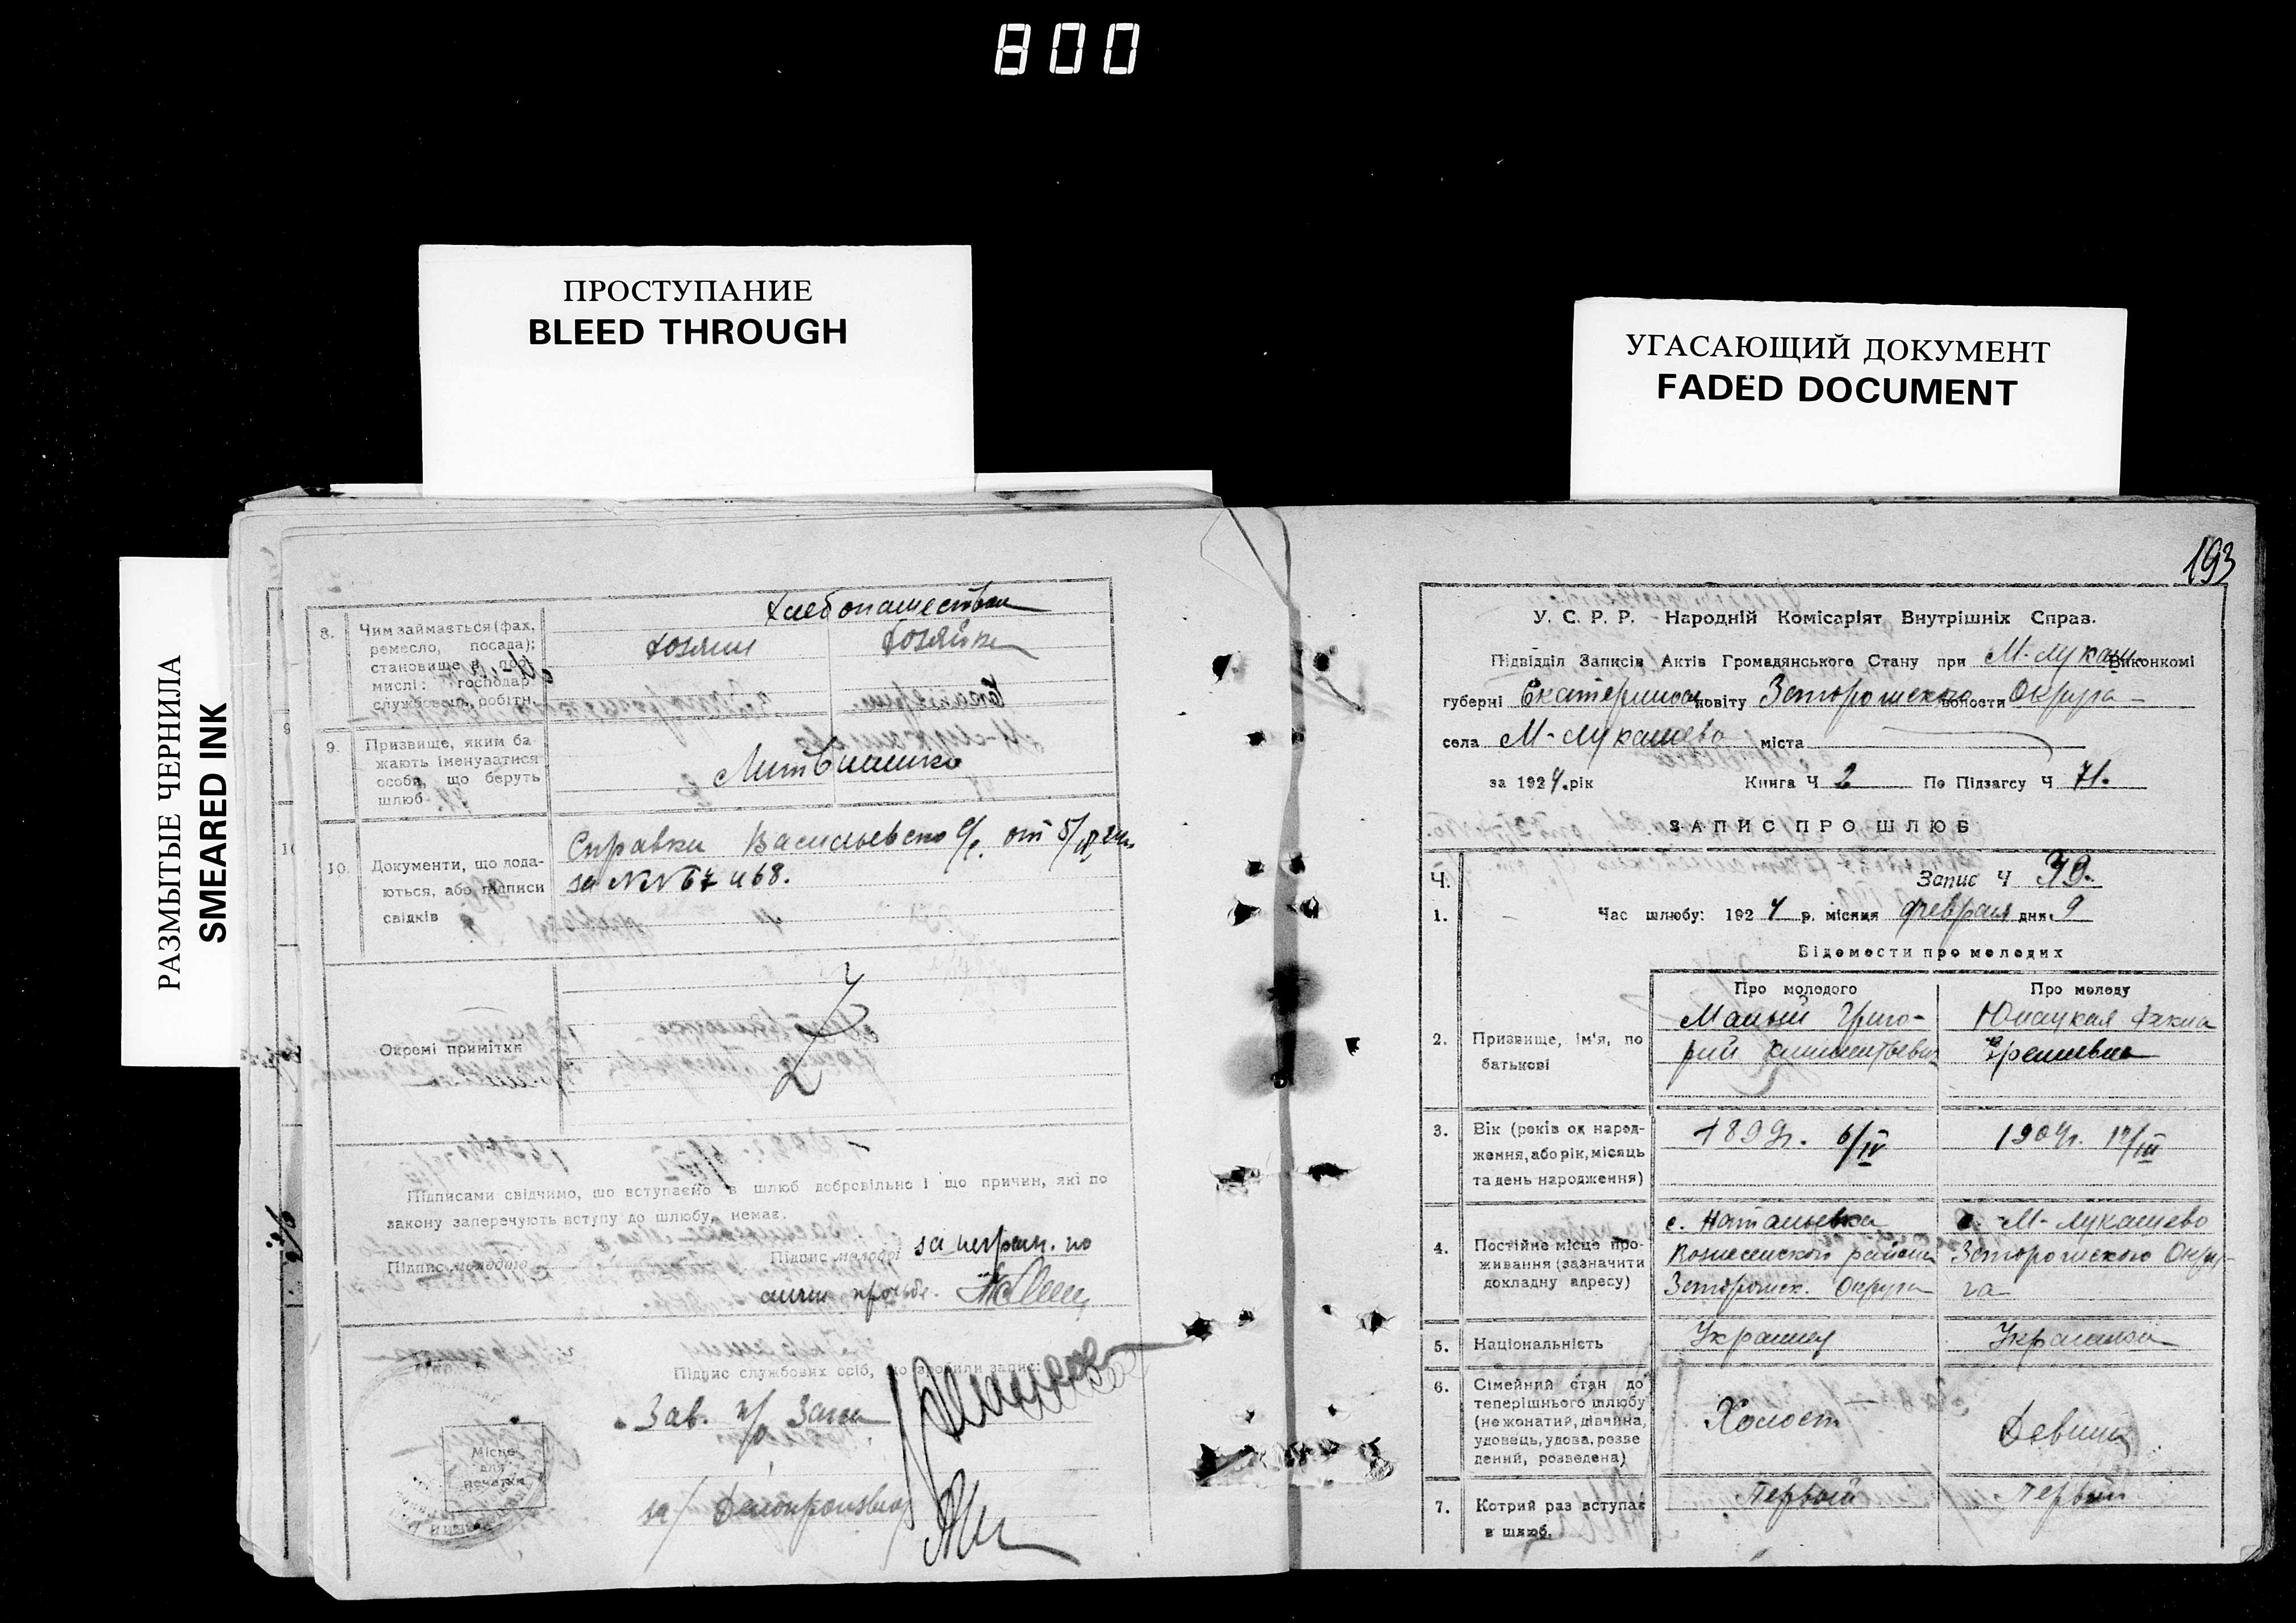 800
ПРОСТУПАНИЕ
BLEED THROUGH
УГАСАЮЩИЙ ДОКУМЕНТ
FADED DOCUMENT
РАЗМЫТЫЕ ЧЕРНИЛА
SMEARED INK
8. Чим займається (фах,
ремесло, посада);
становище в про-
мислі: господар
службовець, робітн.
Хлебопашество
хозяин
хозяйка
9. Призвище, яким ба-
жають іменуватися
особи, що беруть
шлюб
Литвиненко
10. Документи, що пода-
ються, або підписи
свідків
Справки Васильевско с/с. от 5/
за NN 67 и 68.
Окремі примітки
Z
Підписами свідчимо, що вступаємо в шлюб добровільно і що причин, які по
закону заперечують вступу до шлюбу, немає.
Підпис молодого
Підпис молодої за неграм. по
просьбе.
Підпис службових осіб, що зробили запис:
Зав. п/о Загса
за/ Делопроизвод
Місце
для
печатки
193
У. С. Р. Р. Народній Комісаріят Внутрішніх Справ.
Підвідділ Записів Актів Громадянського Стану при М-лукаш Виконкомі
губерні Екатеринос повіту Запорожского волости Округа
села М-лукашево міста
за 1924 рік Книга Ч 2 По Підзагсу Ч 71.
ЗАПИС ПРО ШЛЮБ
Ч. Запис Ч
1. Час шлюбу: 1924 р. місяця февраля дня 9
Відомости про молодих
Про молодого
Про молоду
2. Призвище, ім'я, по
батькові
Малый Григо-
рий Климентьевич
Юнацкая
3. Вік (років од народ-
ження, або рік, місяць
та день народження)
6/IV
1904г. 12/III
4. Постійне місце про-
живання (зазначити
докладну адресу)
с. Натальевка
Вознесенского района
Запорожск. Округа
с. М-лукашево
Запорожского Окру-
га
5. Національність
Украинец
Украинка
6. Сімейний стан до
теперішнього шлюбу
(не жонатий, дівчина,
удовець, удова, розве
дений, розведена)
Холост
Девица
7. Котрий раз вступає
в шлюб.
Первый
Первый